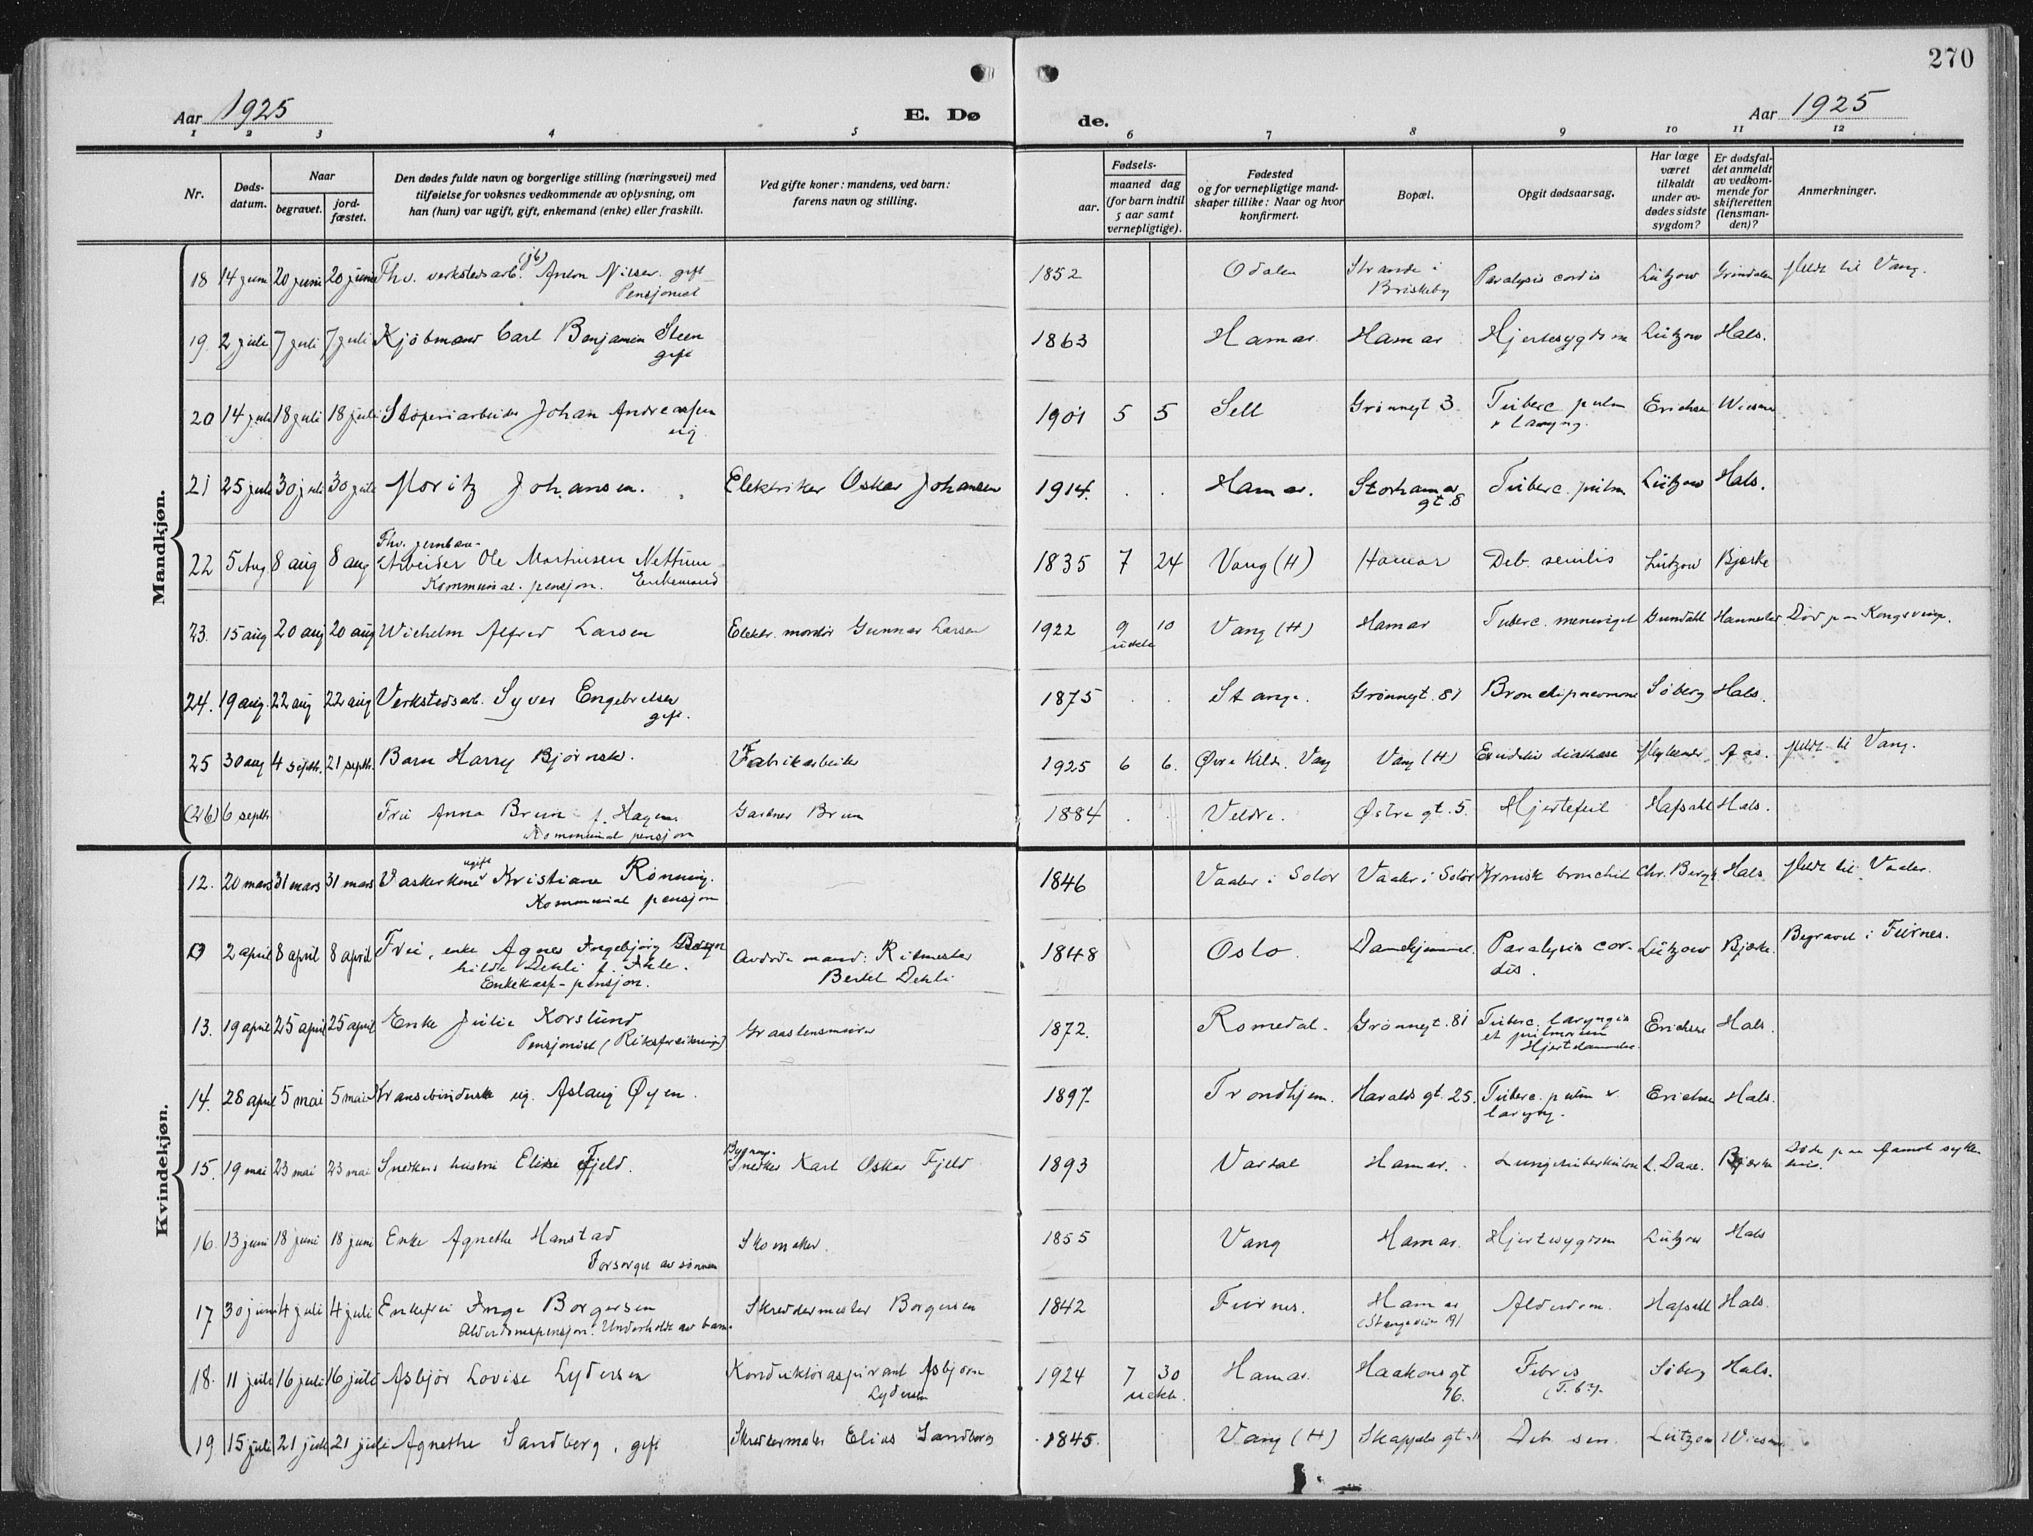 270
Aar 1925 E. Dø de. Aar 1925
1 2 3 4 5 6 7 8 9 10 11 12
Nr. Dødsdatum. Naar begravet. jordfæstet. Den dødes fulde navn og borgerlige stilling (næringsvei) med tilføielse for voksnes vedkommende av oplysning, om han (hun) var ugift, gift, enkemand (enke) eller fraskilt. Ved gifte koner: mandens, ved barn: farens navn og stilling. Fødsels- aar. maaned dag (for barn indtil 5 aar samt vernepligtige). Fødested og for vernepligtige mandskaper tillike: Naar og hvor konfirmert. Bopæl. Opgit dødsaarsag. Har læge været tilkaldt under avdødes sidste sygdom? Er dødsfaldet anmeldt av vedkommende for skifteretten (lensmanden)? Anmerkninger.
Mandkjøn.
18 14 juni 20 juni 20 juni Fhv. verkstedsarb. Anton Nilsen. gift Pensjonist 1852 Odalen Strande i Briskeby Paralysis cordis Lützow Grindalen Meldt til Vang.
19. 2 juli 7 juli 7 juli Kjøbmand Carl Benjamin Steen gift 1863 Hamar. Hamar Hjertesygdom Lützow Hals.
20 14 juli 18 juli 18 juli Støperiarbeider Johan Andreassen ug. 1901 5 5 Sell Grønnegt 3. Tuberc. pulm & laryng. Erichsen
21 25 juli 30 juli 30 juli Moritz Johansen. Elektriker Oskar Johansen 1914. Hamar. Storhamar gt. 8 Tuberc. pulm Lützow Hals.
22 5 Aug 8 aug 8 aug Fhv. jernban- Arbeider Ole Martinsen Nettum Kommunal. pensjon. Enkemand 1835 7 24 Vang (H) Hamar Deb. senilis Lützow Bjerke
23. 15 aug 20 aug 20 aug Wilhelm Alfred Larsen Elektr. montør Gunnar Larsen 1922 9 10 Vang (H) Hamar Tuberc. Død paa Kongsvinger.
24. 19 aug. 22 aug 22 aug Verkstedsarb. Syver Engebretsen gift. 1875 Stange. Grønnegt. 81 Søberg Hals.
25 30 aug 4 septr. 21 septr. Barn Harry Bjørnstad. Fabrikarbeider 1925 6 6. Vang Vang (H) Aas. Meldt til Vang.
(26) 6 septr Fru Anna Brun f. Hagen. Kommunal pensjon Gartner Brun 1884 Veldre. Østre gt. 5. Hjertefeil Hafsahl Hals.
Kvindekjøn.
12. 20 mars 31 mars 31 mars Vaskerkone ugift Kristiane Rønning. Kommunal pensjon 1846 Vaaler i Solør Vaaler i Solør Kronisk bronchit Chr. Hals Meldt til Vaaler.
2 april 8 april 8 april Fru, enke Agnes Ingebjørg hilda Dehli f. Enkekasse-pensjon. Avdøde mand: Ritmester Bertel Dehli 1848 Oslo. Paralysis cordis. Lützow Bjerke. Begravet i Furnes.
13. 19 april 25 april 25 april Enke Julie Korslund Pensjonist (Riksforsikring) Graastensmurer 1872. Romedal. Grønnegt. 81 Tuberc. laryngis et pulmonum Erichsen Hals.
14. 28 april 5 mai 5 mai Kransebinderske ug. Aslaug Øyen. 1897. Trondhjem. Haralds gt. 25. Tuberc. pulm & laryng. Erichsen Hals.
15. 19 mai 23 mai 23 mai Snedkers hustru Elise Fjeld. Bygnings. Snedker Karl Oskar Fjeld 1893 Vardal Hamar. Lungetuberkulose L. Daae. Bjerke Døde paa Aamot sykehus.
16. 13 juni 18 juni 18 juni Enke Agnethe Hanstad Forsørget av sønnen Skomaker. 1855 Vang Hamar. Hjertesygdom Lützow Hals
17 30 juni 4 juli 4 juli Enkefru Inga Borgersen Alderdomspensjon. Underholdt av barn. Skreddermester Borgersen 1842 Furnes. Hamar Alderdom. Hafsahl Hals.
18. 11 juli 16 juli 16 juli Asbjør Lovise Lydersen Konduktøraspirant Asbjørn Lydersen 1924 7 30 Hamar. Haakons gt 16. Febris Søberg Hals.
19 15 juli 21 juli 21 juli Agnethe Sandberg, gift Skreddermester Elias Sandberg 1845. Vang (H) Skappels gt. Deb. sen. Lützow